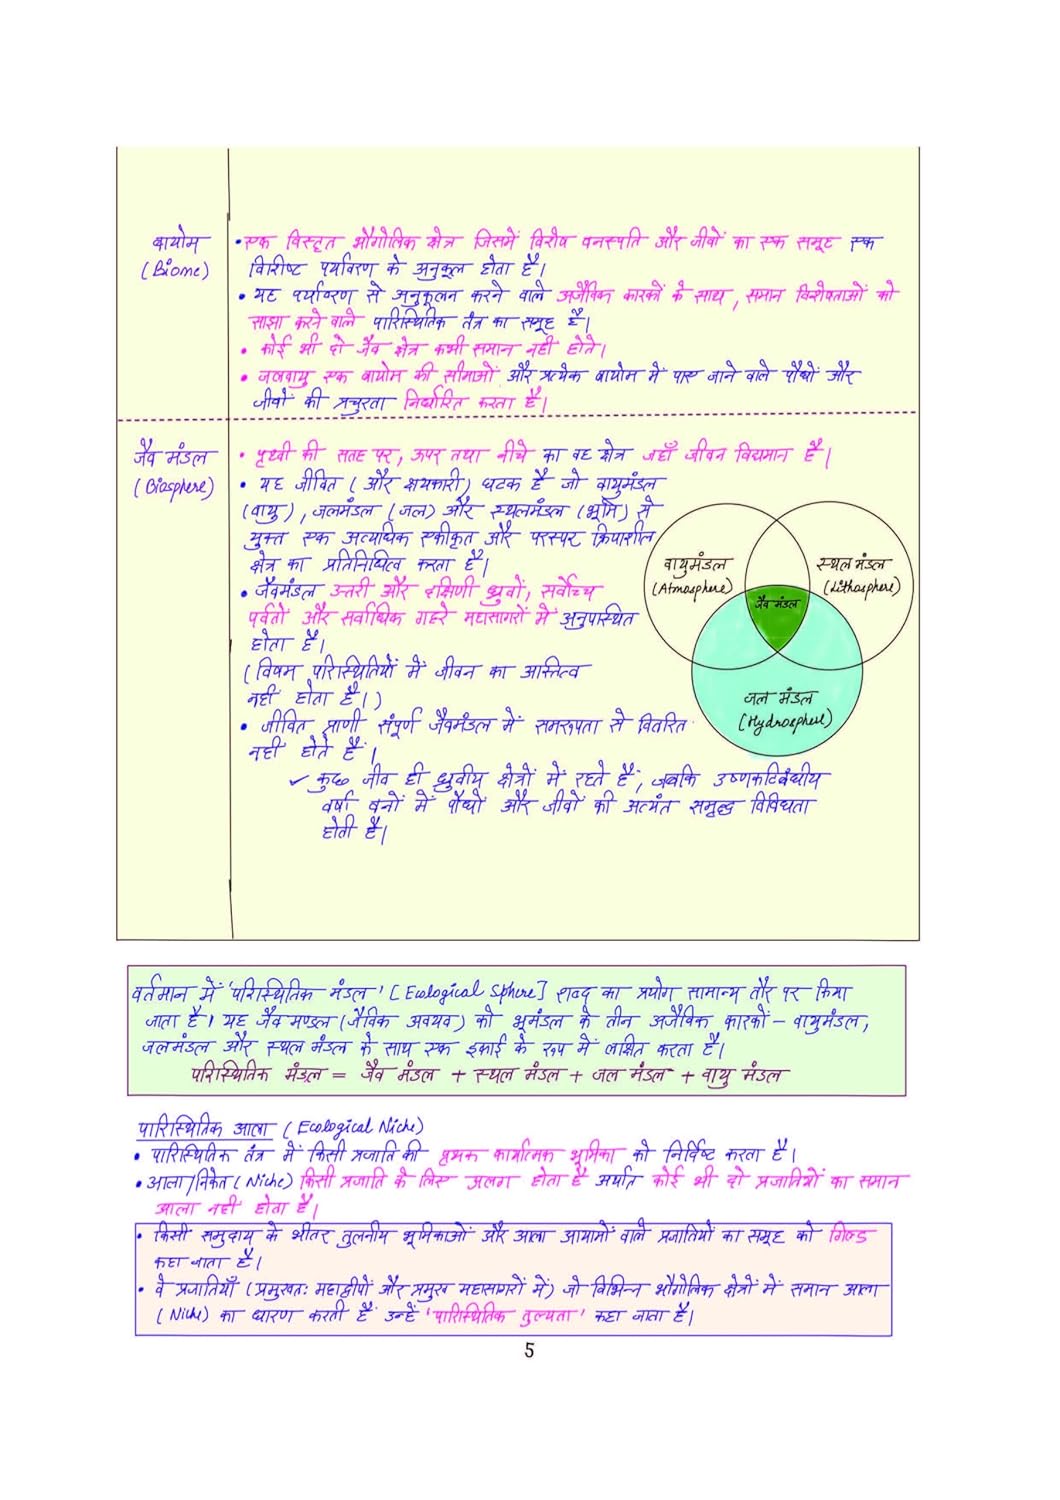 बायोम
(Biome)
• एक विस्तृत भौगोलिक क्षेत्र जिसमें विशेष वनस्पति और जीवों का एक समूह एक
विशिष्ट पर्यावरण के अनुकूल होता है।
• यह पर्यावरण से अनुकूलन करने वाले अजैविक कारकों के साथ, समान विशेषताओं को
साझा करने वाले पारिस्थितिक तंत्र का समूह है।
• कोई भी दो जैव क्षेत्र कभी समान नहीं होते।
• जलवायु एक बायोम की सीमाओं और प्रत्येक बायोम में पाए जाने वाले पौधों और
जीवों की प्रचुरता निर्धारित करता है।
जैव मंडल
(Biosphere)
• पृथ्वी की सतह पर, ऊपर तथा नीचे का वह क्षेत्र जहाँ जीवन विद्यमान है।
• यह जीवित (और क्षयकारी) घटक है जो वायुमंडल
(वायु), जलमंडल (जल) और स्थलमंडल (भूमि) से
युक्त एक अत्यधिक एकीकृत और परस्पर क्रियाशील
क्षेत्र का प्रतिनिधित्व करता है।
• जैवमंडल उत्तरी और दक्षिणी ध्रुवों, सर्वोच्च
पर्वतों और सर्वाधिक गहरे महासागरों में अनुपस्थित
होता है।
(विषम परिस्थितियों में जीवन का अस्तित्व
नहीं होता है।)
• जीवित प्राणी संपूर्ण जैवमंडल में समरूपता से वितरित
नहीं होते हैं।
✓ कुछ जीव ही ध्रुवीय क्षेत्रों में रहते हैं; जबकि उष्णकटिबंधीय
वर्षा वनों में पौधों और जीवों की अत्यंत समृद्ध विविधता
होती है।
वायुमंडल
(Atmosphere)
स्थल मंडल
(Lithosphere)
जैव मंडल
जल मंडल
(Hydrosphere)
वर्तमान में 'परिस्थितिक मंडल' [Ecological Sphere] शब्द का प्रयोग सामान्य तौर पर किया
जाता है। यह जैव मण्डल (जैविक अवयव) को भूमंडल के तीन अजैविक कारकों – वायुमंडल,
जलमंडल और स्थल मंडल के साथ एक इकाई के रूप में लक्षित करता है।
परिस्थितिक मंडल = जैव मंडल + स्थल मंडल + जल मंडल + वायु मंडल
पारिस्थितिक आला (Ecological Niche)
• पारिस्थितिक तंत्र में किसी प्रजाति की पृथक कार्यात्मक भूमिका को निर्दिष्ट करता है।
• आला/निकेत (Niche) किसी प्रजाति के लिए अलग होता है अर्थात कोई भी दो प्रजातियों का समान
आला नहीं होता है।
• किसी समुदाय के भीतर तुलनीय भूमिकाओं और आला आयामों वाले प्रजातियों का समूह को गिल्ड
कहा जाता है।
• वे प्रजातियाँ (प्रमुखतः महाद्वीपों और प्रमुख महासागरों में) जो विभिन्न भौगोलिक क्षेत्रों में समान आला
(Niche) का धारण करती हैं उन्हें 'पारिस्थितिक तुल्यता' कहा जाता है।
5